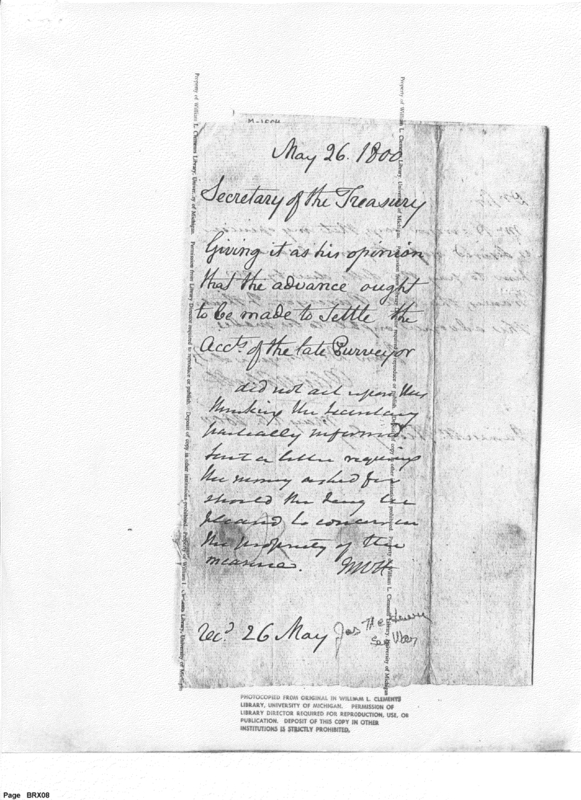 M-1504
May 26. 1800
Secretary of the Treasury
Giving it as his opinion
that the advance ought
to be made to settle the
Accts. of the late Purveyor
did not act upon this
thinking the Secretary
partially informed
sent a letter requiring
the money asked for
should the being be
pleased to concur in
the propriety of the
measure. McH
recd 26 May Jas McHenry
Sec War
Property of William L. Clements Library, University of Michigan. Permission from Library Director required to reproduce or publish. Deposit of copy in other institutions prohibited.
PHOTOCOPIED FROM ORIGINAL IN WILLIAM L. CLEMENTS
LIBRARY, UNIVERSITY OF MICHIGAN. PERMISSION OF
LIBRARY DIRECTOR REQUIRED FOR REPRODUCTION, USE, OR
PUBLICATION. DEPOSIT OF THIS COPY IN OTHER
INSTITUTIONS IS STRICTLY PROHIBITED.
Page BRX08